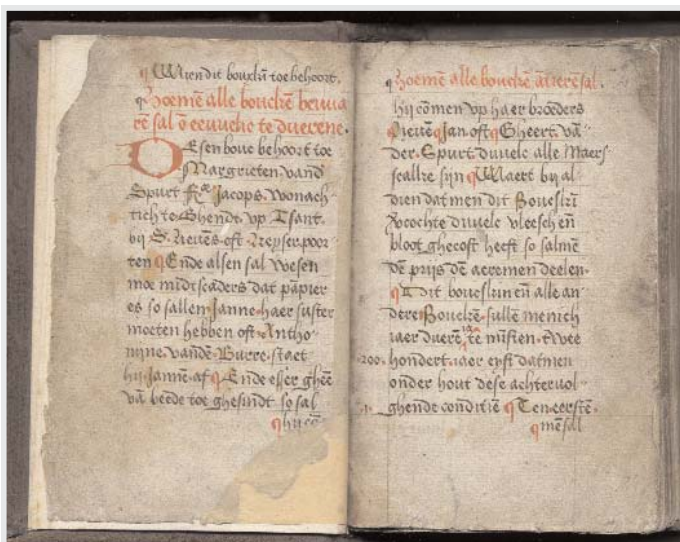 ¶ Wien dit bouxkī toe behoort.
¶ Hoemē alle bouckē bewua
rē sal ō eeuwiche te duerene.
Desen bouc behoort toe
Margrieten vand
Spurt Fᵃ Jacops. wonach
tich te Ghendt. vp Tsant.
bij S. Lieuēs oft Keyser poor
ten ¶ Ende alsen sal wesen
moe midtscaders dat papier
es so sallen Janne haer suster
moeten hebben oft Antho
mine. vandē Burre. staet
hij Jannē af ¶ Ende esser gheē
vā beede toe ghesindt so sal
¶ hij cō
¶ Hoemē alle bouckē
hij cōmen vp haer broeders
Lieuē ¶ Jan oft ¶ Gheert. vā
der. Spurt. duuele alle Maers
scallre sijn ¶ Waert bij al
dien dat men dit Bouxkī
vcochte duuele vleesch eñ
bloot ghecost heeft so salmē
dē prijs dē aeremen deelen.
¶ Dit bouxkin eñ alle an
dere Bouckē sullē menich
iaer duerē te mīsten twee
200. hondert. iaer eyst datmen
onder hout dese achteruol
1. ghende conditiē ¶ Ten eerstē
¶ mē sal